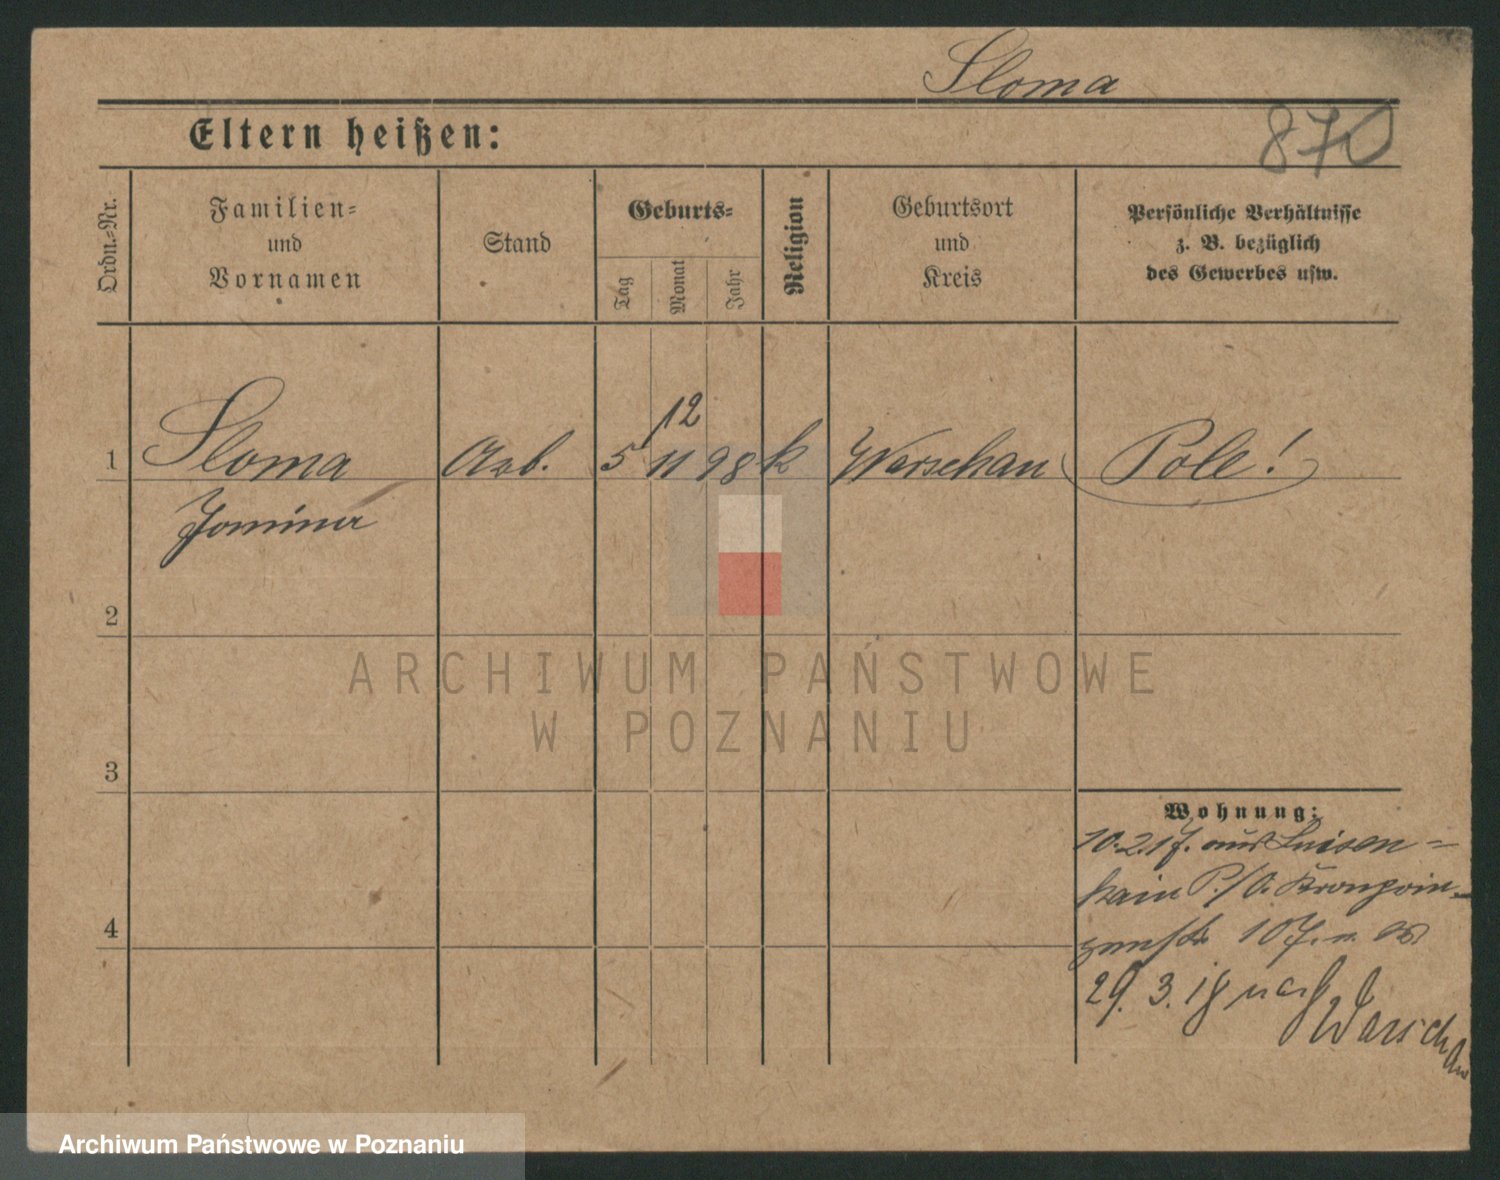 Sloma
Eltern heißen:
870
Ordn.-Nr.
Familien-
und
Vornamen
Stand
Geburts-
Tag
Monat
Jahr
Religion
Geburtsort
und
Kreis
Persönliche Verhältnisse
z. B. bezüglich
des Gewerbes usw.
12
1 Sloma Arb. 5 11 98 k Warschau Pole!
2
ARCHIWUM PAŃSTWOWE
W POZNANIU
3
Wohnung:
10.2.17. aus Luisen-
hain P./O. Kronprin-
zenstr 107.
4
29. 3. 18 nach
Warschau
Archiwum Państwowe w Poznaniu